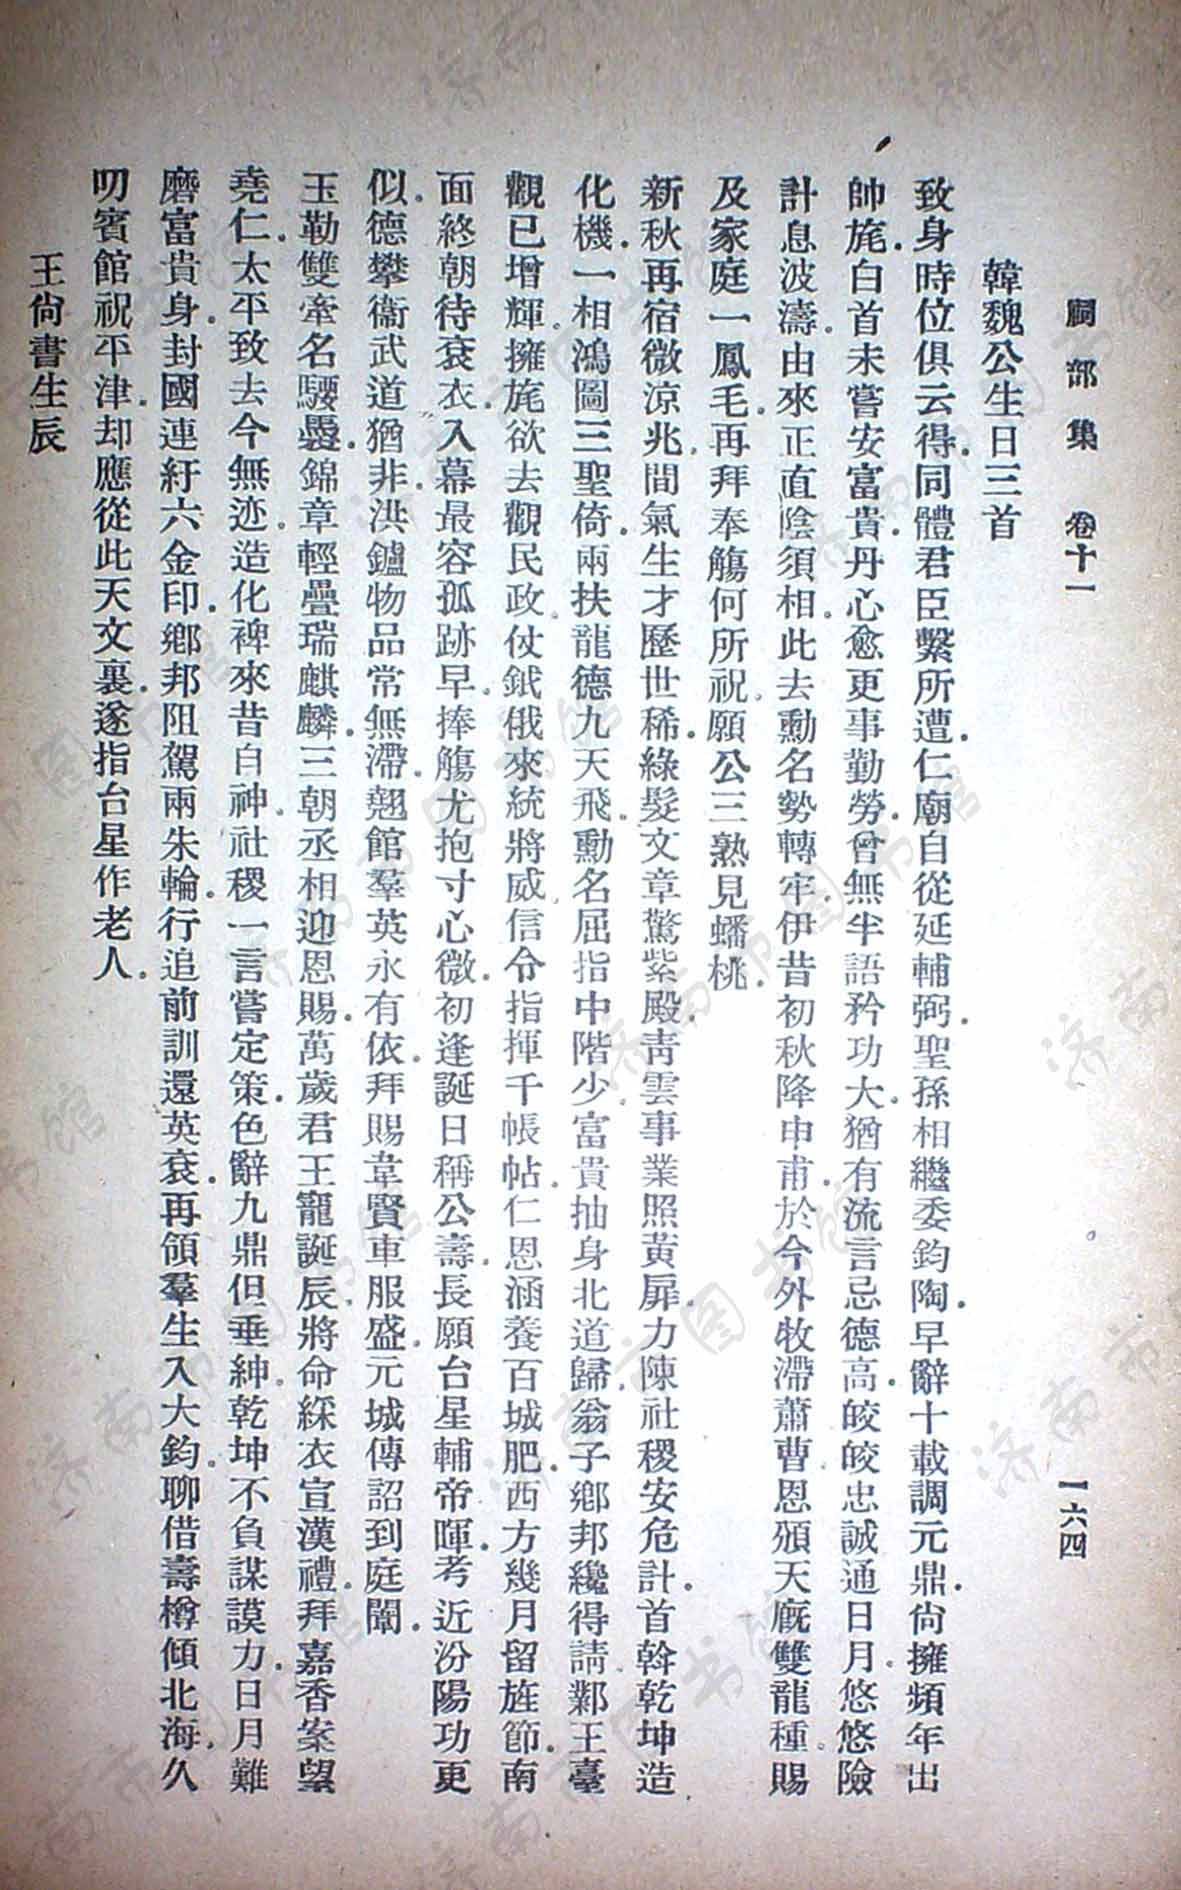 祠部集 卷十一 一六四
韓魏公生日三首
致身時位俱云得同體君臣繫所遭仁廟自從延輔弼聖孫相繼委鈞陶早辭十載調元鼎尙擁頻年出
帥旄白首未嘗安富貴丹心愈更事勤勞曾無半語矜功大猶有流言忌德高皎皎忠誠通日月悠悠險
計息波濤由來正直陰須相此去勳名勢轉牢伊昔初秋降申甫於今外牧滯蕭曹恩頒天廐雙龍種賜
及家庭一鳳毛再拜奉觴何所祝願公三熟見蟠桃
新秋再宿微涼兆間氣生才歷世稀綠髮文章驚紫殿靑雲事業照黃扉力陳社稷安危計首斡乾坤造
化機一相鴻圖三聖倚兩扶龍德九天飛勳名屈指中階少富貴抽身北道歸翁子鄉邦纔得請鄴王臺
觀已增輝擁旄欲去觀民政仗鉞俄來統將威信令指揮千帳帖仁恩涵養百城肥西方幾月留旌節南
面終朝待袞衣入幕最容孤跡早捧觴尤抱寸心微初逢誕日稱公壽長願台星輔帝暉考近汾陽功更
似德攀衞武道猶非洪鑪物品常無滯翹館羣英永有依拜賜韋賢車服盛元城傳詔到庭闈
玉勒雙牽名騕褭錦章輕疊瑞麒麟三朝丞相迎恩賜萬歲君王寵誕辰將命綵衣宣漢禮拜嘉香案望
堯仁太平致去今無迹造化裨來昔白神社稷一言嘗定策色辭九鼎但垂紳乾坤不負謀謨力日月難
磨富貴身封國連紆六金印鄉邦阻駕兩朱輪行追前訓還英袞再領羣生入大鈞聊借壽樽傾北海久
叨賓館祝平津却應從此天文裏遂指台星作老人
王尙書生辰